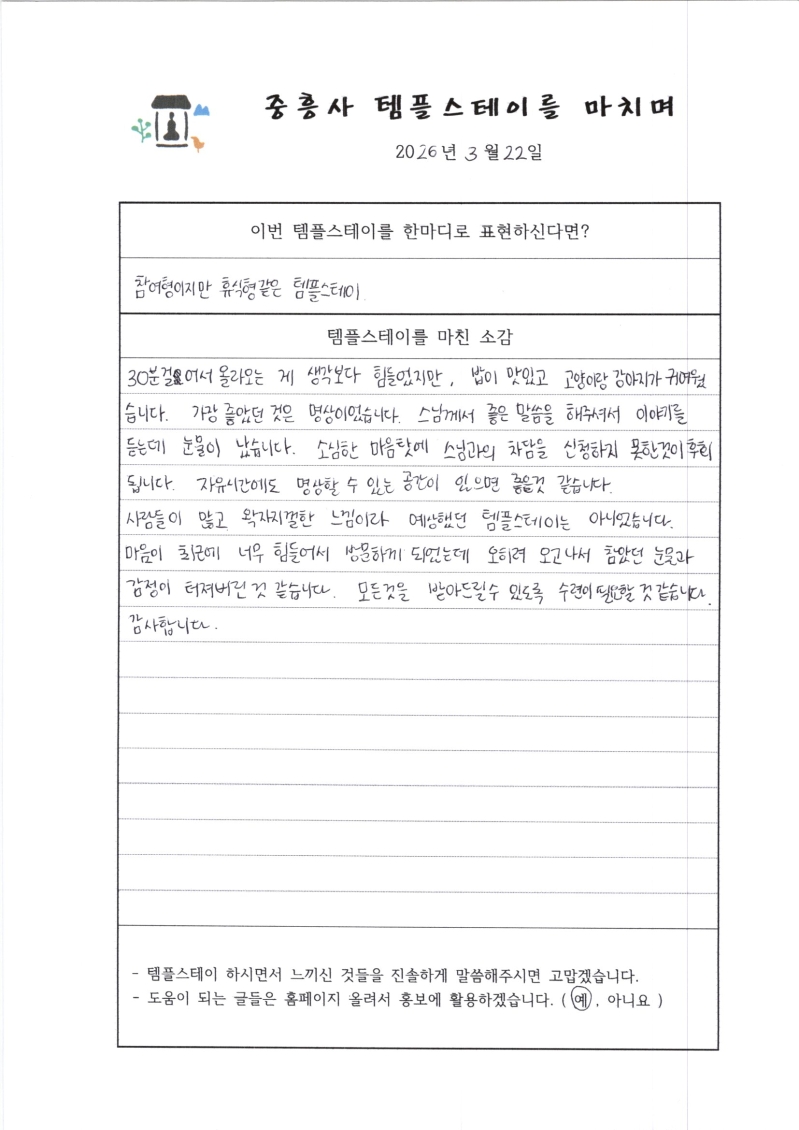 중흥사 템플스테이를 마치며
2026년 3월 22일
이번 템플스테이를 한마디로 표현하신다면?
참여형이지만 휴식형같은 템플스테이
템플스테이를 마친 소감
30분걸어서 올라오는 게 생각보다 힘들었지만, 밥이 맛있고 고양이랑 강아지가 귀여웠
습니다. 가장 좋았던 것은 명상이었습니다. 스님께서 좋은 말씀을 해주셔서 이야기를
듣는데 눈물이 났습니다. 소심한 마음탓에 스님과의 차담을 신청하지 못한것이 후회
됩니다. 자유시간에도 명상할 수 있는 공간이 있으면 좋을것 같습니다.
사람들이 많고 왁자지껄한 느낌이라 예상했던 템플스테이는 아니었습니다.
마음이 최근에 너무 힘들어서 방문하게 되었는데 오히려 오고나서 참았던 눈물과
감정이 터져버린 것 같습니다. 모든것을 받아드릴수 있도록 수련이 필요할 것 같습니다.
감사합니다.
- 템플스테이 하시면서 느끼신 것들을 진솔하게 말씀해주시면 고맙겠습니다.
- 도움이 되는 글들은 홈페이지 올려서 홍보에 활용하겠습니다. ( 예 , 아니요 )